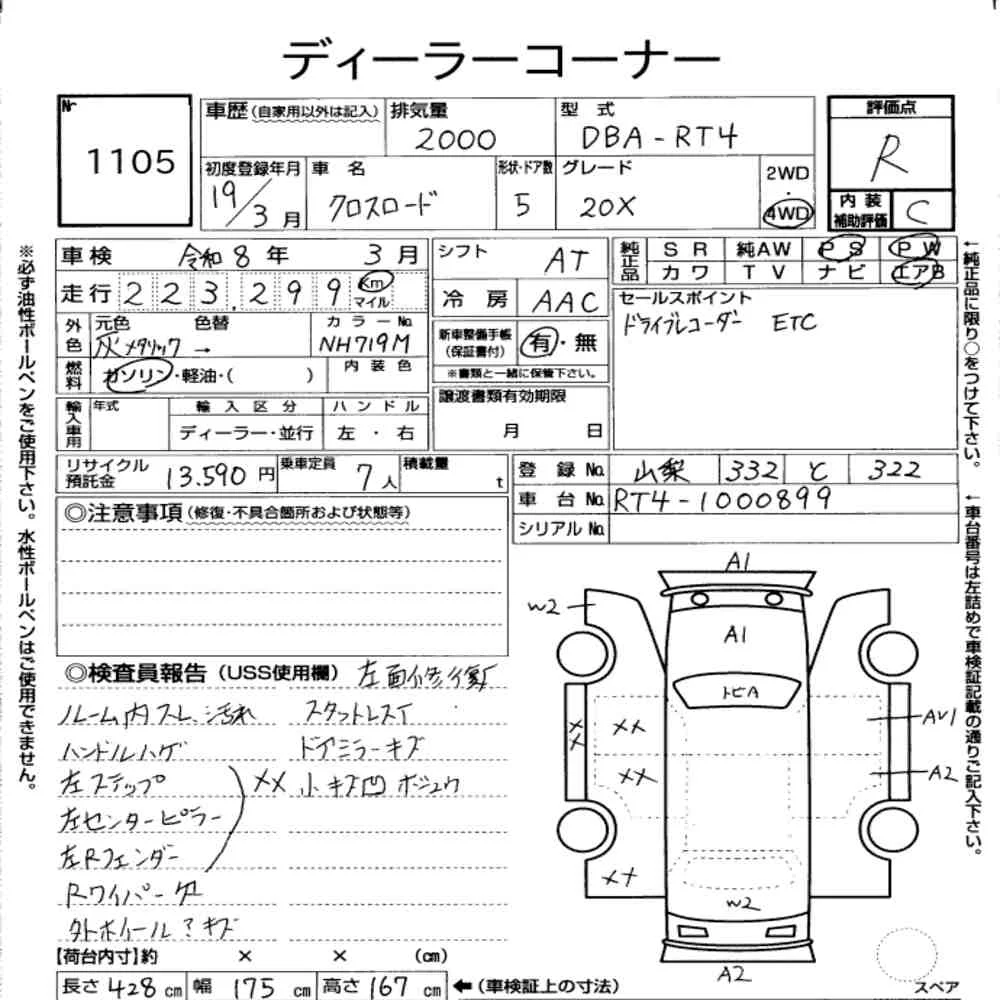 ディーラーコーナー
Nr 1105
車歴(自家用以外は記入) 排気量 2000 型式 DBA-RT4
初度登録年月 19/3月 車名 クロスロード 形状・ドア数 5 グレード 20X 2WD・4WD
評価点 R
内装補助評価 C
車検 令和8年 3月
走行 223,299 km マイル
外色 元色 灰メタリック → 色替 カラーNo. NH719M
燃料 ガソリン・軽油・( ) 内装色
輸入車用 年式 輸入区分 ディーラー・並行 ハンドル 左・右
シフト AT
冷房 AAC
新車整備手帳(保証書付) 有・無
※書類と一緒に保管下さい。
譲渡書類有効期限 月 日
純正品 SR 純AW PS PW
カワ TV ナビ エアB
セールスポイント
ドライブレコーダー ETC
リサイクル預託金 13.590円 乗車定員 7人 積載量 t
登録No. 山梨 332 と 322
車台No. RT4-1000899
シリアルNo.
◎注意事項(修復・不具合箇所および状態等)
◎検査員報告(USS使用欄) 左面修復
ルーム内スレ、汚れ スタットレスT
ハンドルハゲ ドアミラーキズ
左ステップ XX 小キズ凹 ボシュウ
左センターピラー
左Rフェンダー
Rワイパー欠
外ホイール?キズ
A1
W2
A1
トビA
XX
XX
AW1
XX
A2
XX
W2
A2
スペア
【荷台内寸】約 × × (cm)
長さ 428cm 幅 175cm 高さ 167cm ←(車検証上の寸法)
※必ず油性ボールペンをご使用下さい。水性ボールペンはご使用できません。
←純正品に限り○をつけて下さい。
←車台番号は左詰めで車検証記載の通りご記入下さい。